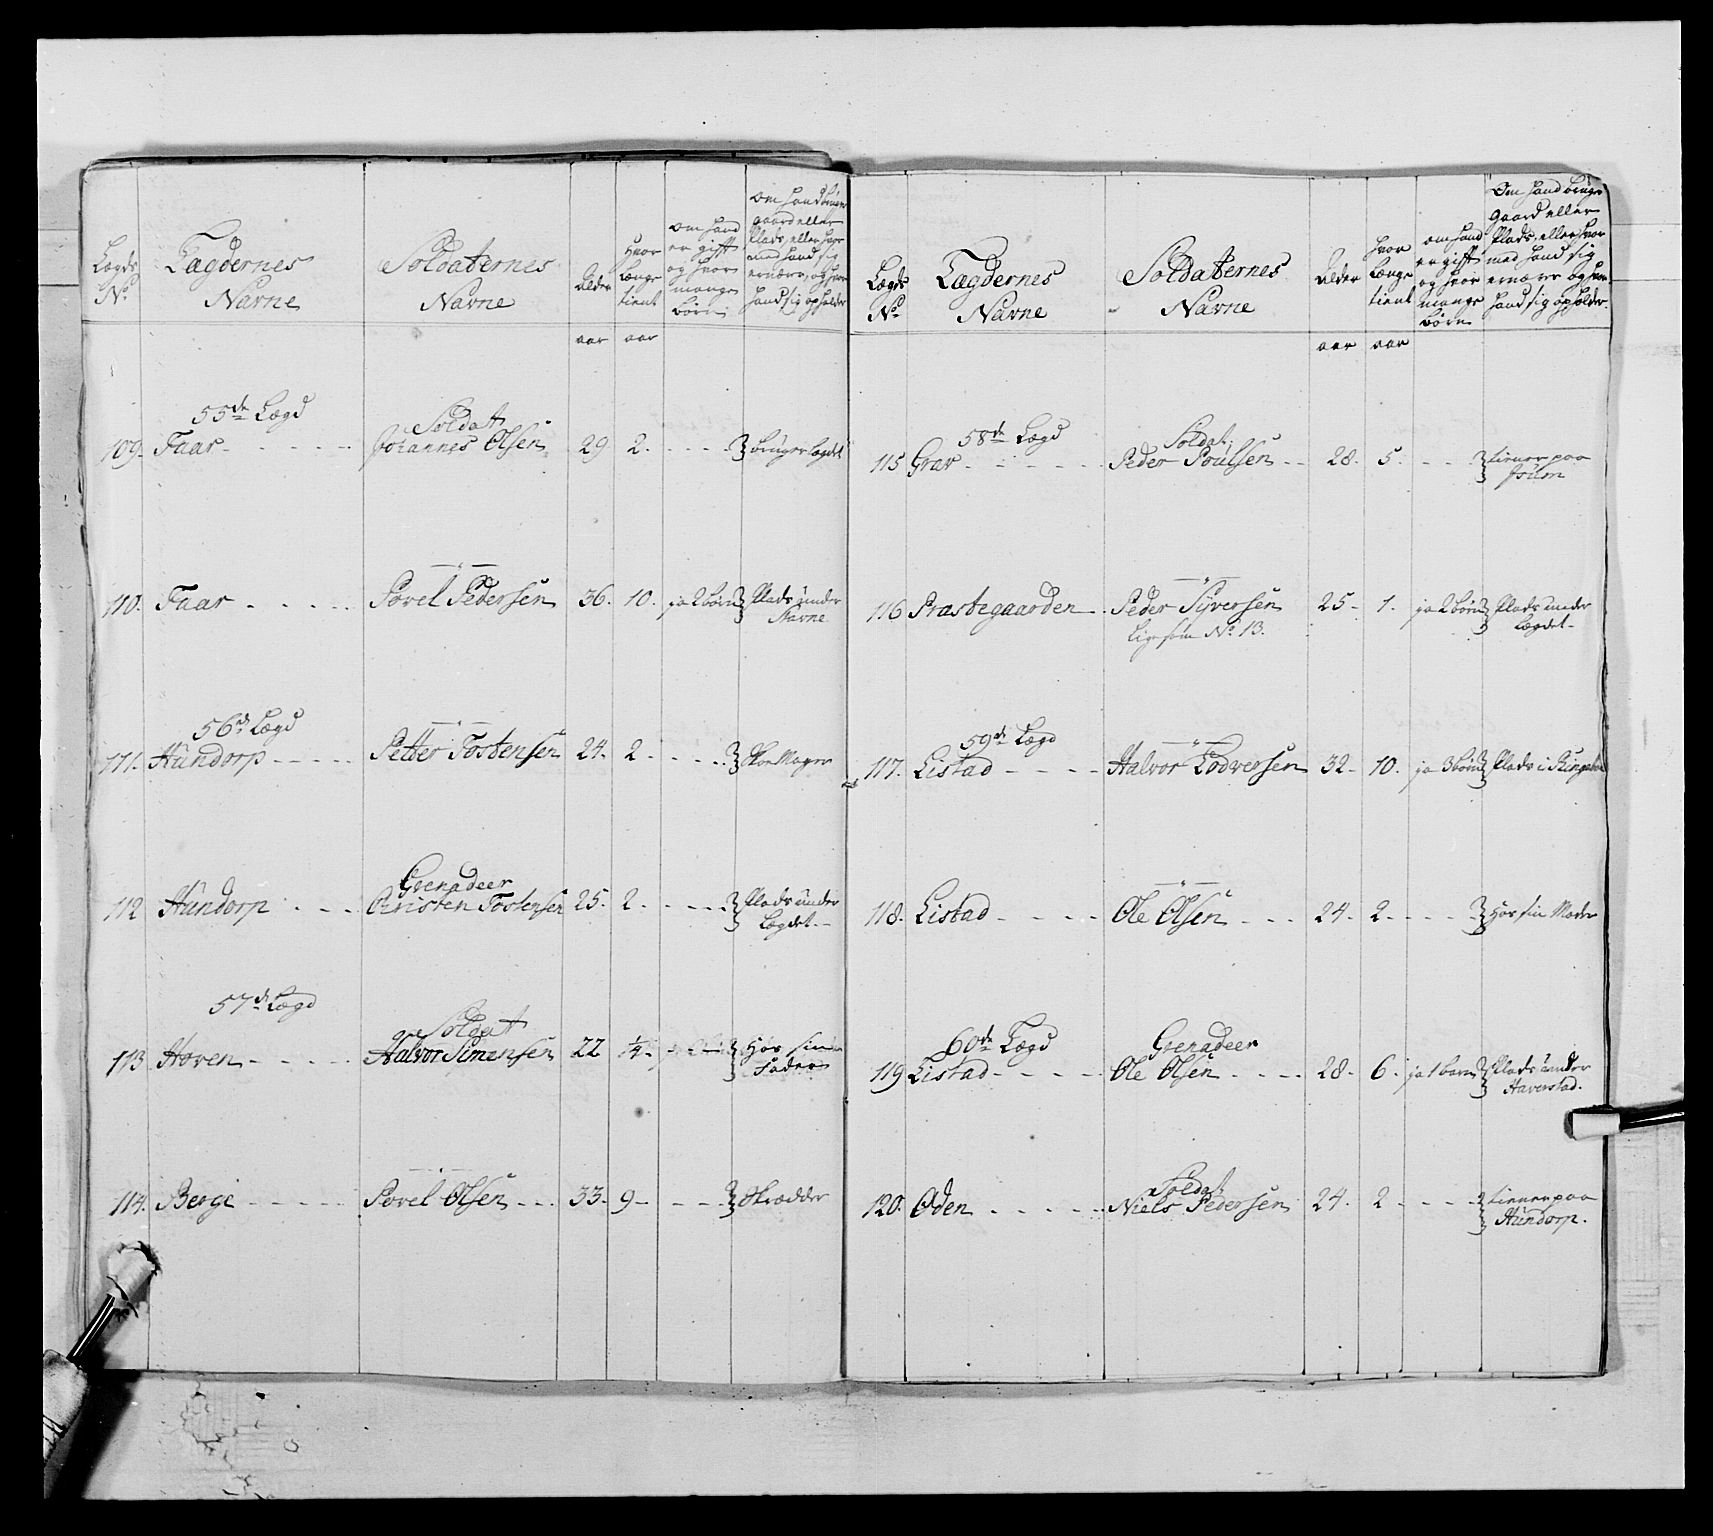 Lægds No | Lægdernes Navne | Soldaternes Navne | Alder | Hvor længe tient | om hand er gift og hvor mange børn | om hand bruger gaard eller Plads, eller hvor med hand sig ernære, og hvor hand sig opholder
aar aar
55de Lægd
Soldat
109. Faar - - - - - Johannes Olsen 29 2. - - - - bruger lægdet
110. Faar - - - - Povel Pedersen 36. 10. ja 2 børn Plads under
Navne
56de Lægd
111. Hundorp - - - - - Petter Tostensen 24. 2 - - - - - Skoe Mager
Grenadeer
112 Hundorp - - - Christen Tostensen 25. 2 - - - - - Plads under
Lægdet
57de Lægd
Soldat
113 Hoven - - - - - Halvor Simensen 22 1/4 Hos sin
Fader
114. Berge - - - - - Povel Olsen - - - 33. 9 - - - - Skrædder
Lægds No | Lægdernes Navne | Soldaternes Navne | Alder | hvor længe tient | om hand er gift og hvor mange børn | Om hand bruge Gaard eller Plads, eller hvor med hand sig ernære og hvor hand sig opholder
aar aar
58de Lægd
Soldat
115 Grav - - - - - Peder Poulsen - - 28. 5. - - - tiener paa
116 Præstegaarden - Peder Syversen 25 - 1. ja 2 børn Plads under
Ligesom No 13. Lægdet -
59de Lægd
117. Listad - - - - Halvor Lodversen 32 - 10. ja 3 børn Plads i
118. Listad - - - - Ole Olsen - - - 24 - 2 - - - - Hos sin Moder
60de Lægd
Grenadeer
119 Listad - - - - - Ole Olsen - - - - 28 - 6. ja 1 barn Plads under
Haverstad.
Soldat
120. Oden - - - - - Niels Pedersen 24. 2 - - - - tiener paa
Hundorp.